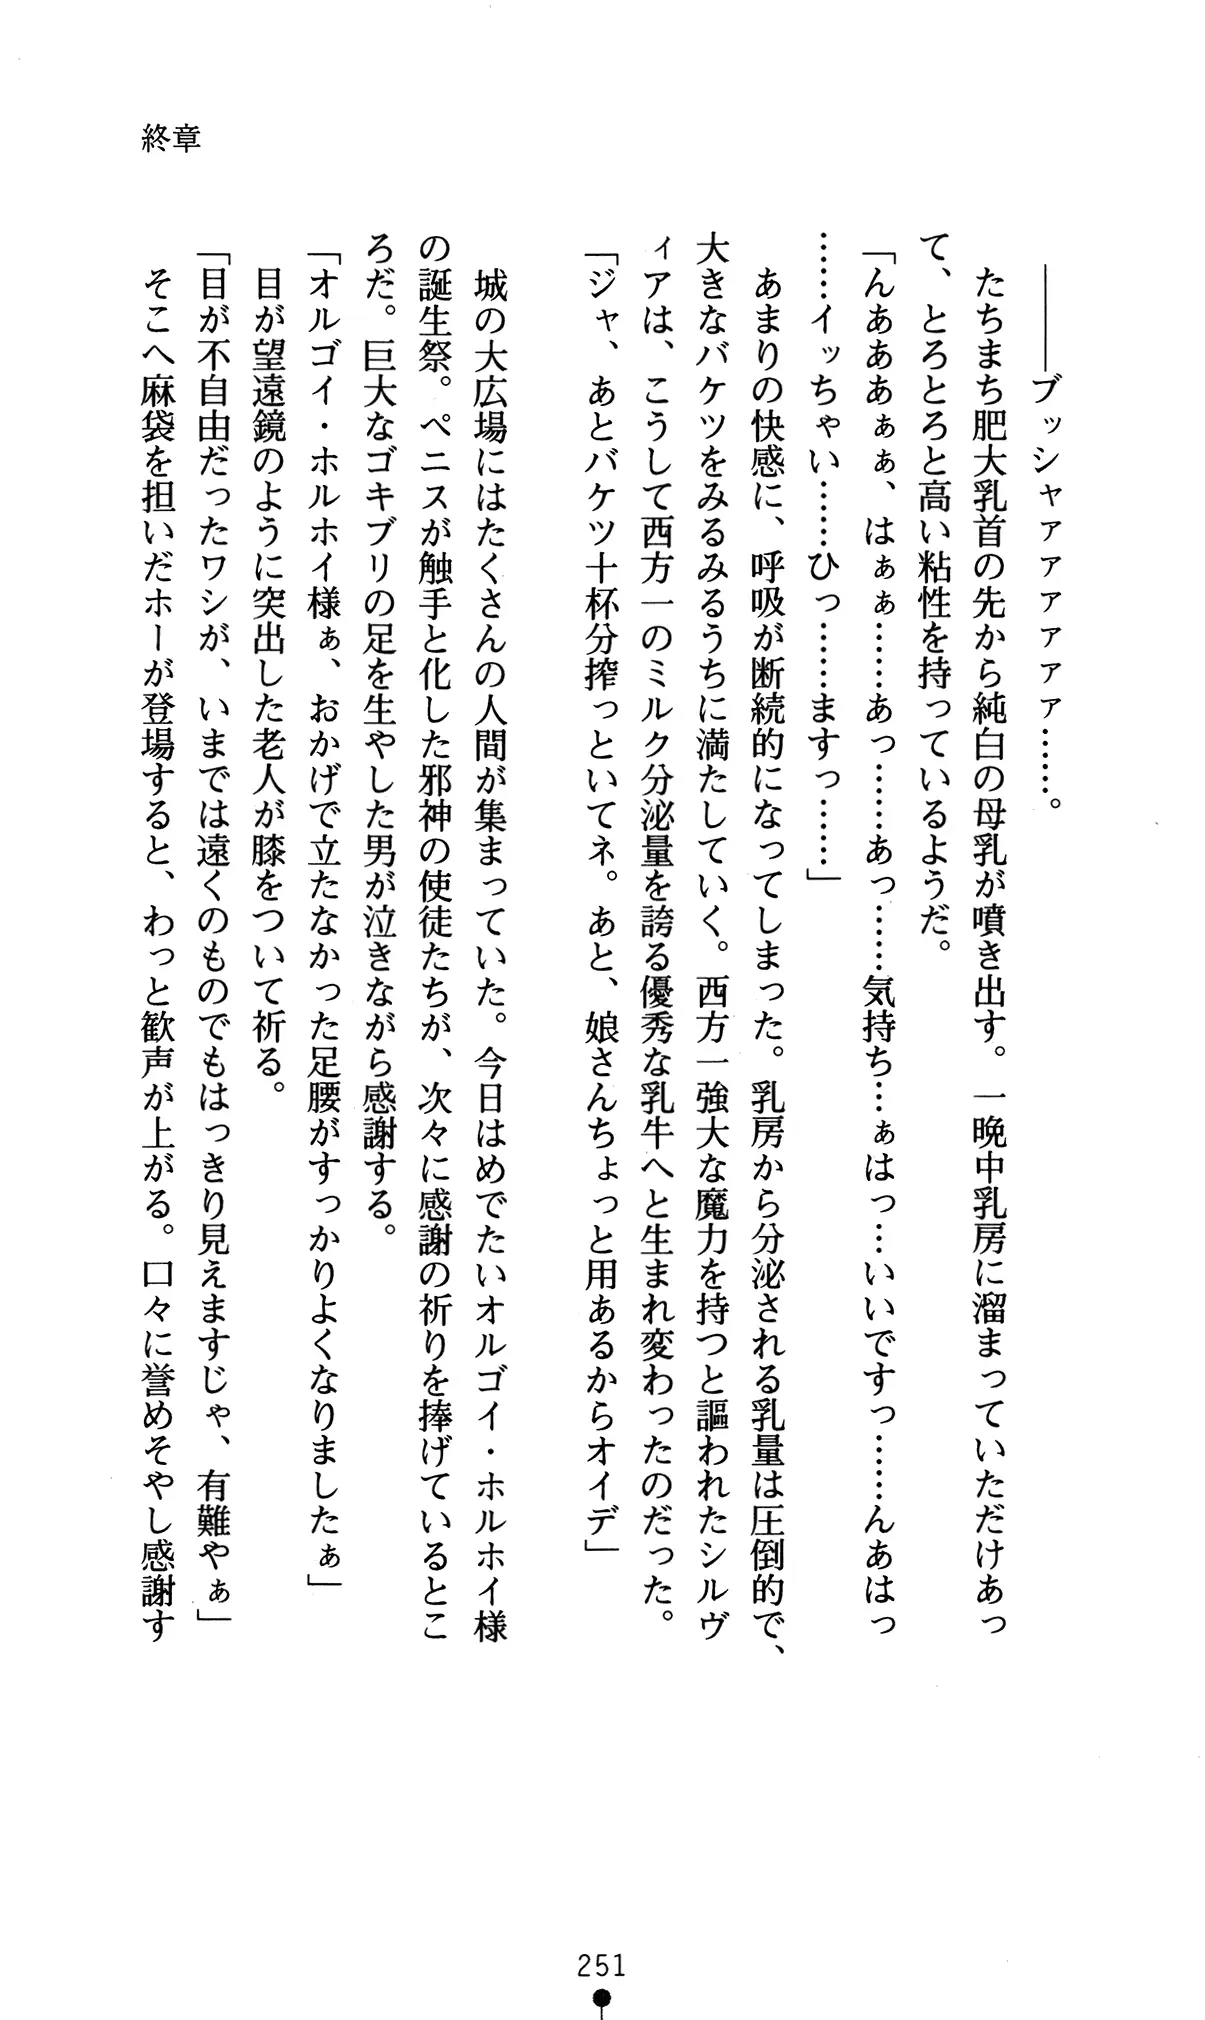 終章
――ブッシャァァァァァァ……。
たちまち肥大乳首の先から純白の母乳が噴き出す。一晩中乳房に溜まっていただけあっ
て、とろとろと高い粘性を持っているようだ。
「んあああぁぁ、はぁぁ……あっ……あっ……気持ち…ぁはっ…いいですっ……んあはっ
……イッちゃい……ひっ……ますっ……」
あまりの快感に、呼吸が断続的になってしまった。乳房から分泌される乳量は圧倒的で、
大きなバケツをみるみるうちに満たしていく。西方一強大な魔力を持つと謳われたシルヴ
ィアは、こうして西方一のミルク分泌量を誇る優秀な乳牛へと生まれ変わったのだった。
「ジャ、あとバケツ十杯分搾っといてネ。あと、娘さんちょっと用あるからオイデ」
城の大広場にはたくさんの人間が集まっていた。今日はめでたいオルゴイ・ホルホイ様
の誕生祭。ペニスが触手と化した邪神の使徒たちが、次々に感謝の祈りを捧げているとこ
ろだ。巨大なゴキブリの足を生やした男が泣きながら感謝する。
「オルゴイ・ホルホイ様ぁ、おかげで立たなかった足腰がすっかりよくなりましたぁ」
目が望遠鏡のように突出した老人が膝をついて祈る。
「目が不自由だったワシが、いまでは遠くのものでもはっきり見えますじゃ、有難やぁ」
そこへ麻袋を担いだホーが登場すると、わっと歓声が上がる。口々に誉めそやし感謝す
251